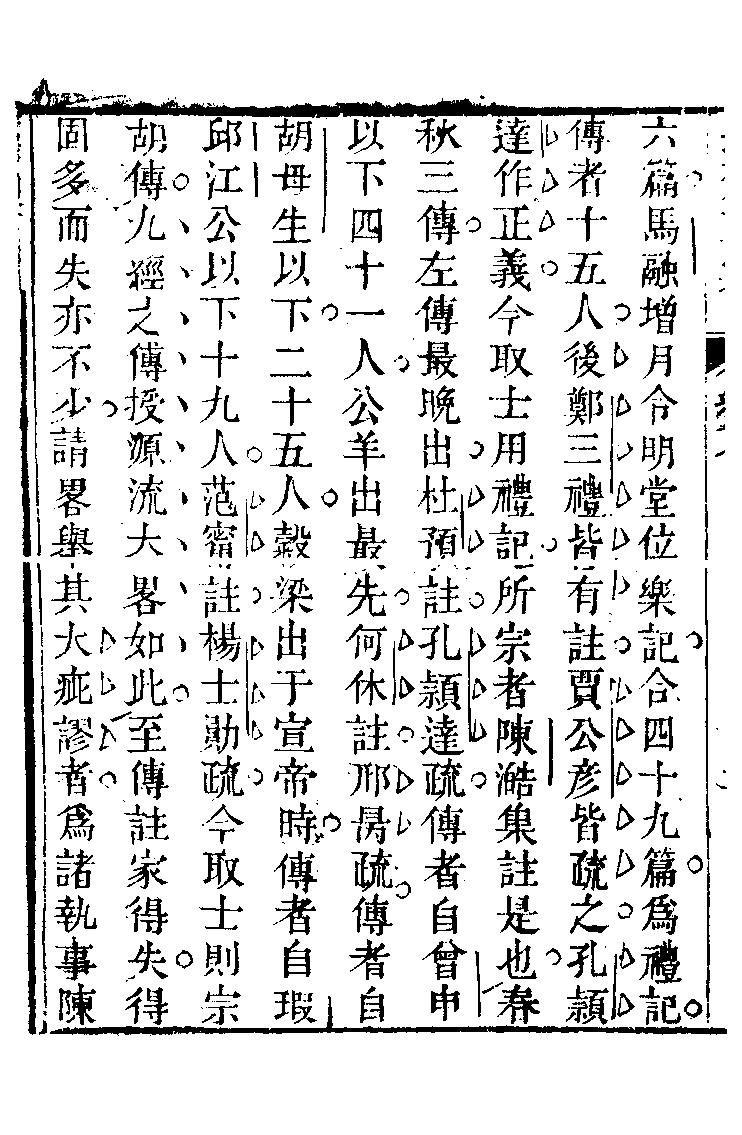 六篇馬融增月令明堂位樂記合四十九篇爲禮記
傳者十五人後鄭三禮皆有註賈公彥皆疏之孔頴
達作正義今取士用禮記所宗者陳澔集註是也春
秋三傳左傳最晩出杜預註孔頴達疏傳者自曾申
以下四十一人公羊出最先何休註邢昺疏傳者自
胡母生以下二十五人糓梁出于宣帝時傳者自瑕
邱江公以下十九人范甯註楊士勛疏今取士則宗
胡傳九經之傳授源流大畧如此至傳註家得失得
固多而失亦不少請畧舉其大疵謬者爲諸執事陳